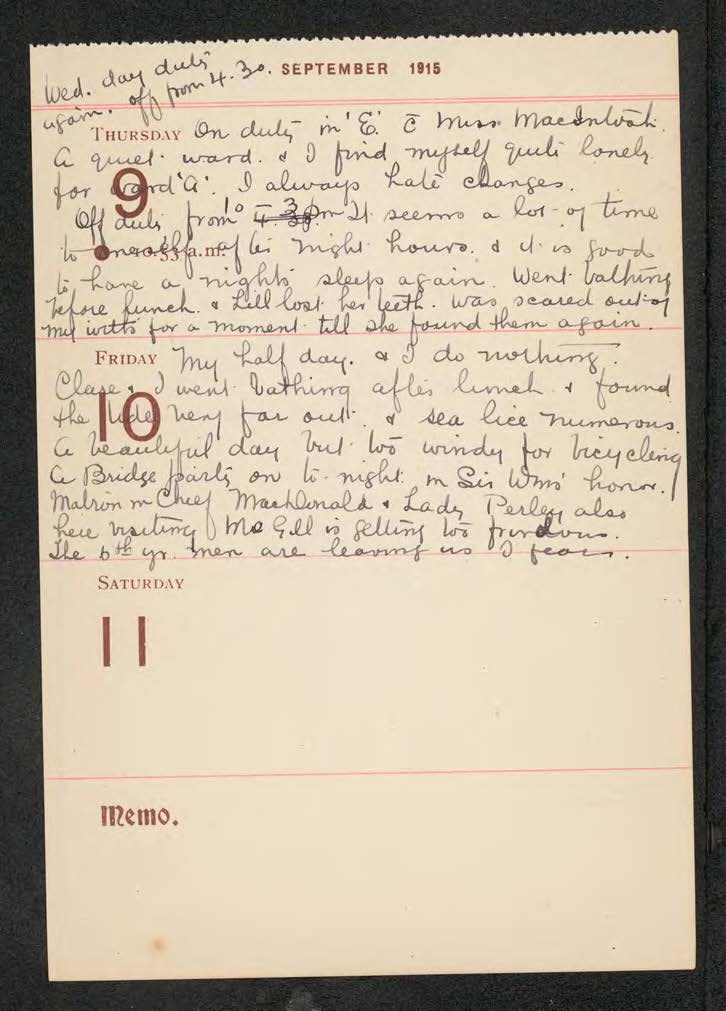 SEPTEMBER 1915
Wed. day duty
again. off from 4.30.
THURSDAY On duty in 'E'. c̄ Miss MacIntosh.
A quiet ward. & I find myself quite lonely
for ward 'A'. I always hate changes.
9
Off duty from 10 It seems a lot of time
to oneself after night hours. & it is good
10.53 a.m.
to have a night's sleep again. Went bathing
before lunch. & Lill lost her teeth. Was scared out of
my witts for a moment till she found them again.
FRIDAY My half day. & I do nothing.
Clare & I went bathing after lunch & found
the tide very far out. & sea lice numerous.
10
A beautiful day but too windy for bicycling
A Bridge party on to-night in Sir Wms' honor.
Matron in Chief MacDonald & Lady Perley also
here visiting McGill is getting too
The 6th yr. men are leaving us I fear.
SATURDAY
11
Memo.